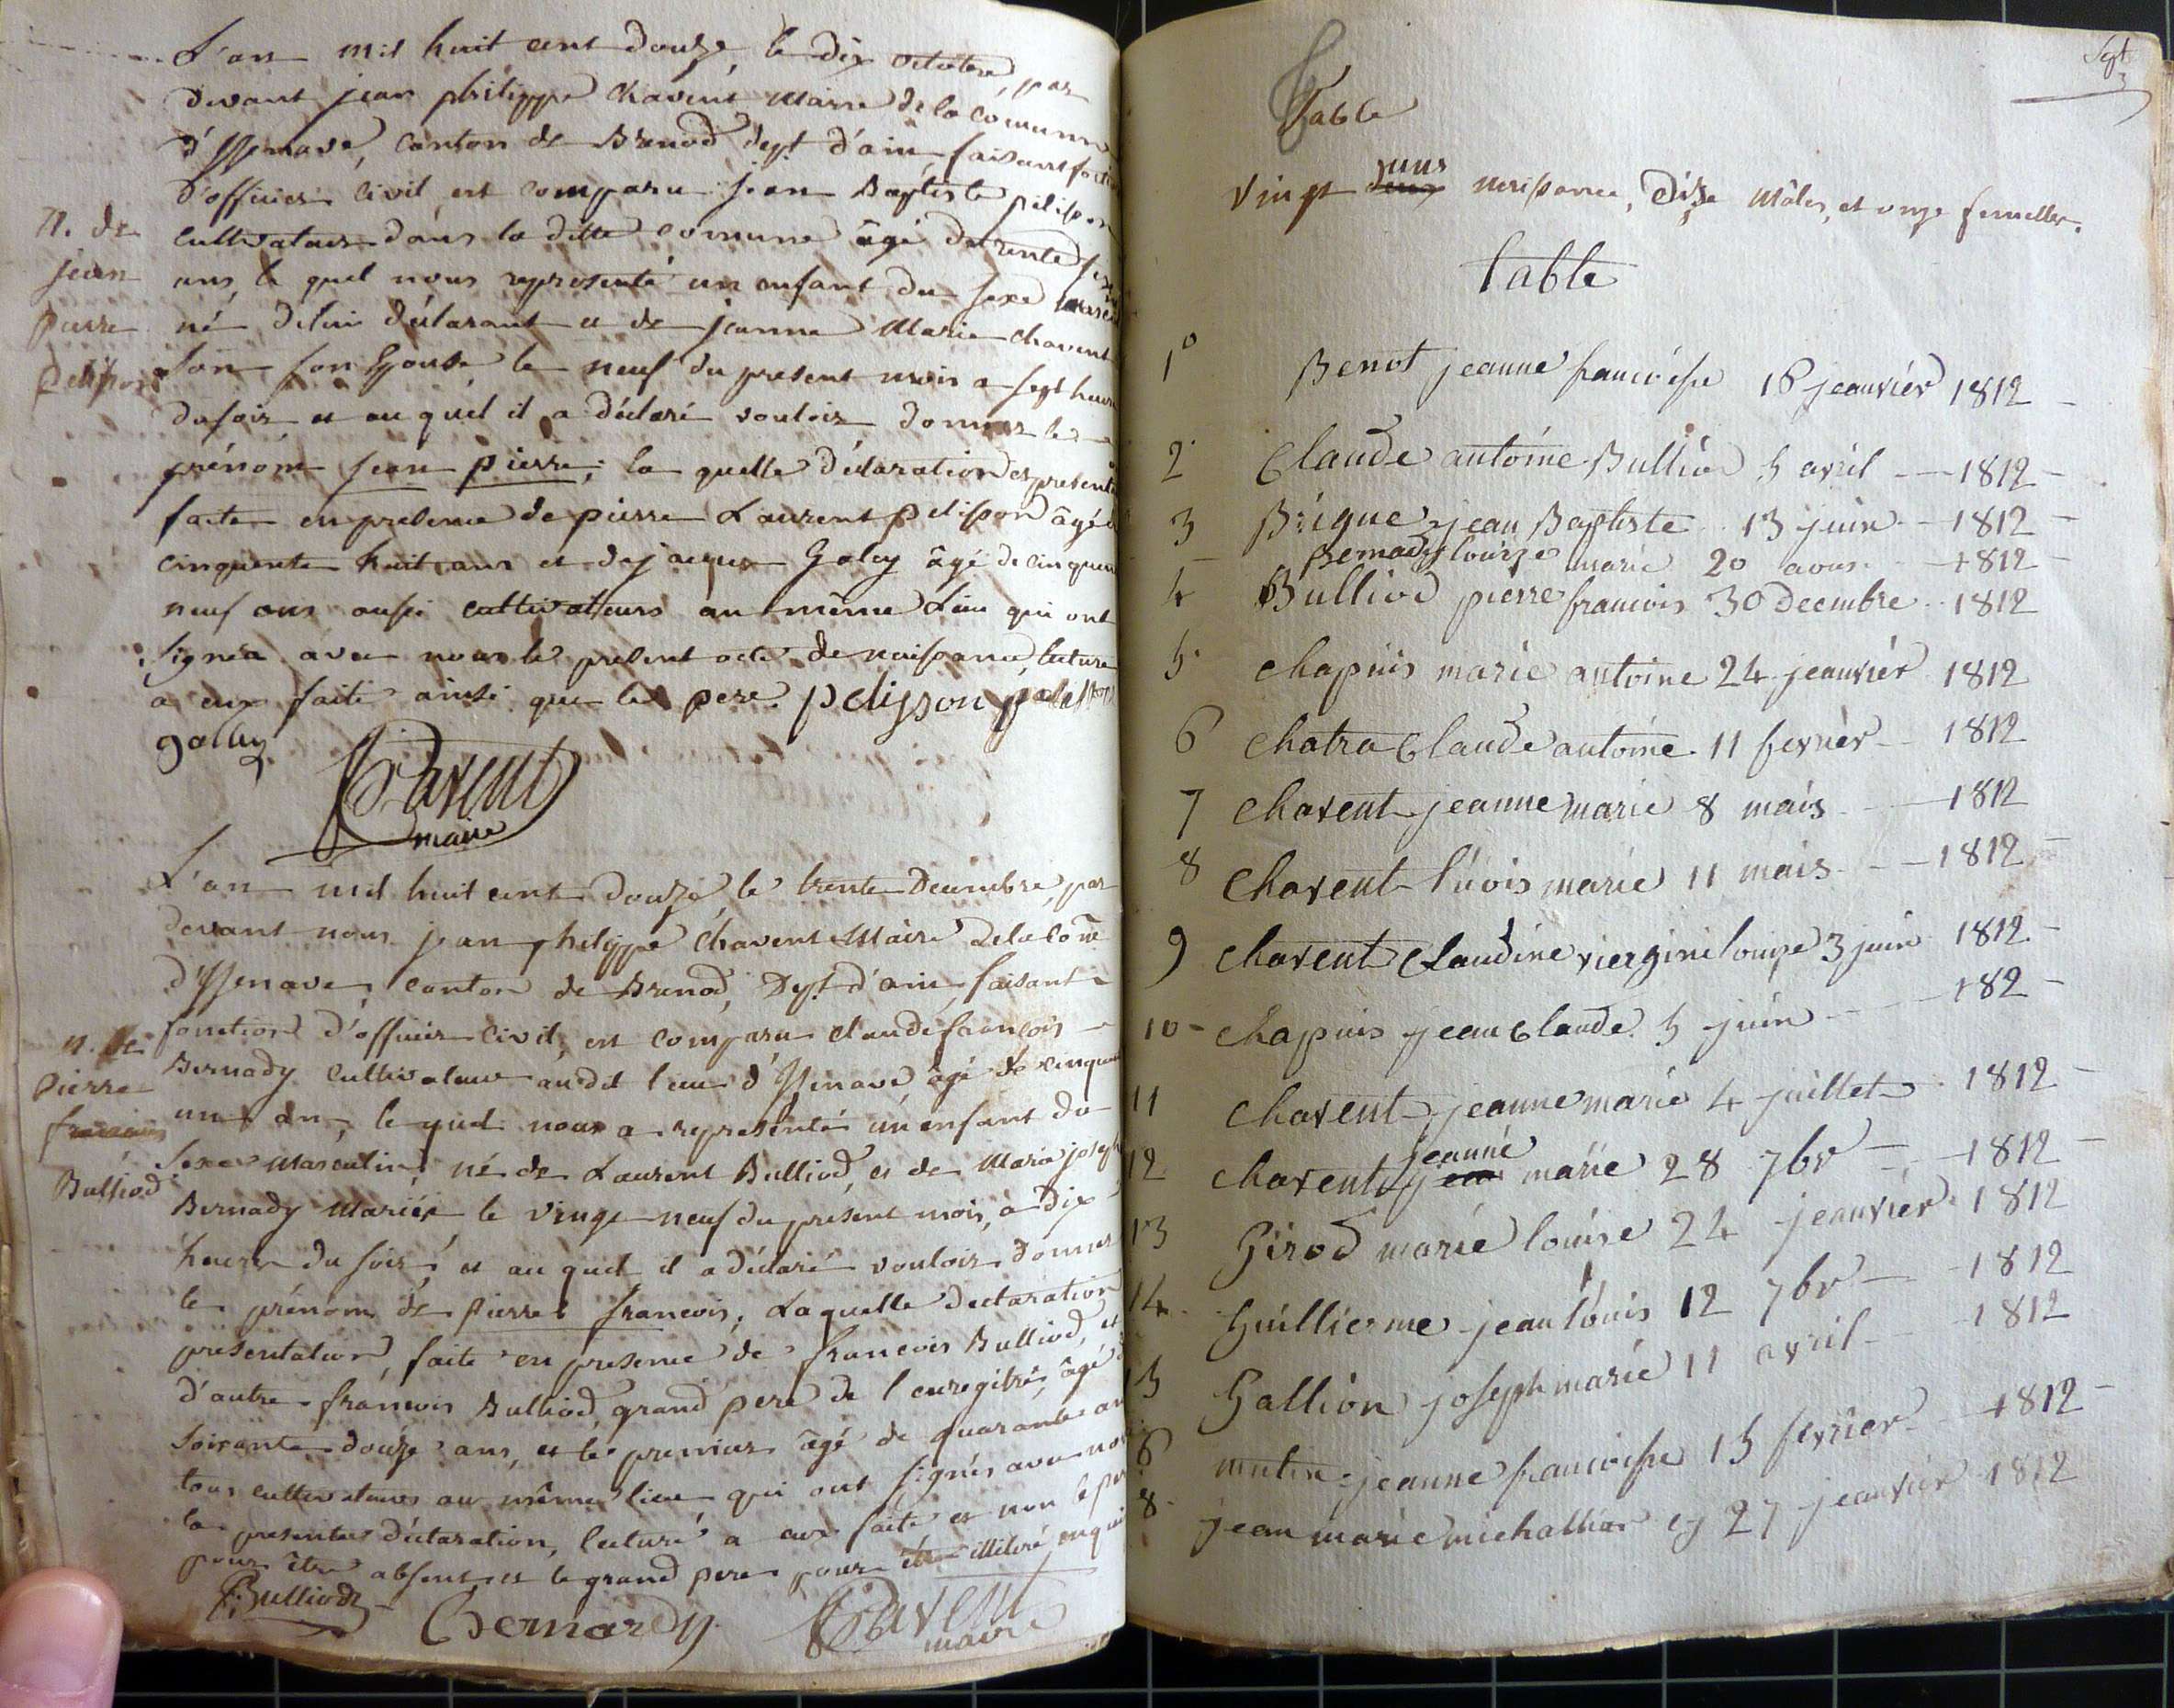 L'an mil huit cent douze, le dix octobre, par
devant jean philippe Chavent Maire de la Comune
d'Yzenave, Canton de Brenod dept. d'ain, faisant
d'officier Civil est comparu jean Baptiste pelisson
cultivateur dans la ditte comune âgé de trente
n. de
jean
pierre
pelisson
ans, le quel nous represente un enfant du sexe
né de lui déclarant et de jeanne Marie Chavent
son Epouse le neuf du present mois a sept heures
du soir et au quel il a déclaré vouloir donner le
prénom jean pierre; la quelle déclaration et
faite en presence de pierre Laurent pelisson âgé
cinquante huit ans et de jacques Goley âgé de
neuf ans aussi cultivateurs au même Lieu qui ont
signés avec nous le present acte de naissance, lecture
a eux faite ainsi que le pere. pelisson
golley
Chavent
maire
L'an mil huit cent douze, le trente Decembre, par
devant nous jean philippe Chavent Maire de la Cone
d'Yzenave, canton de Brenod, Dept d'ain, faisant
fonction d'officier Civil, est comparu claude francois
n. de
pierre
francois
Bulliod
Bernady Cultivateur audit lieu d'Yzenave âgé de cinquante
un an, le quel nous a representé un enfant du
Sexe Masculin, né de Laurent Bulliod, et de Marie
Bernady Mariés le vingt neuf du présent mois, à dix
heures du soir, et au quel il a déclaré vouloir donner
le prénom de pierre francois, Laquelle declaration
présentation, faite en presence de francois Bulliod, et
d'autre francois Bulliod, grand pere de l'enregitré, âgé
soixante douze ans, et le premier âgé de quarante
tous cultivateurs au même lieu qui ont signés avec
la presente déclaration, lecture a eux faite et non le
pour être absent et le grand pere pour être illitéré
Bulliod
Bernardy
Chavent
maire
Table
vingt uns deux naissance, dize Mâles, et onze femelles.
table
1° Benot jeanne francoise 16 jeanvier 1812
2 Claude antoine Bulliod 5 avril 1812
3 Brigue jean Baptiste 13 juin 1812
Bernady louize marie 20 aous. 1812
4 Bulliod pierre francois 30 decembre 1812
5 Chapuis marie antoine 24 jeanvier 1812
6 Chatra Claude antoine 11 fevrier 1812
7 Chavent jeanne marie 8 mais 1812
8 Chavent marie 11 mais 1812
9 Chavent Claudine vierginie louize 3 juin 1812
10 Chapuis jean Claude 5 juin 182
11 Chavent jeanne marie 4 juillet 1812
12 Chavent jeanne marie 28 7br 1812
13 Girod marie louise 24 jeanvier 1812
14 Guillierme jean louis 12 7br 1812
5 Gallion joseph marie 11 avril 1812
6 mutin jeanne francoise 15 fevrier 1812
8 jean marie michallier 27 jeanvier 1812